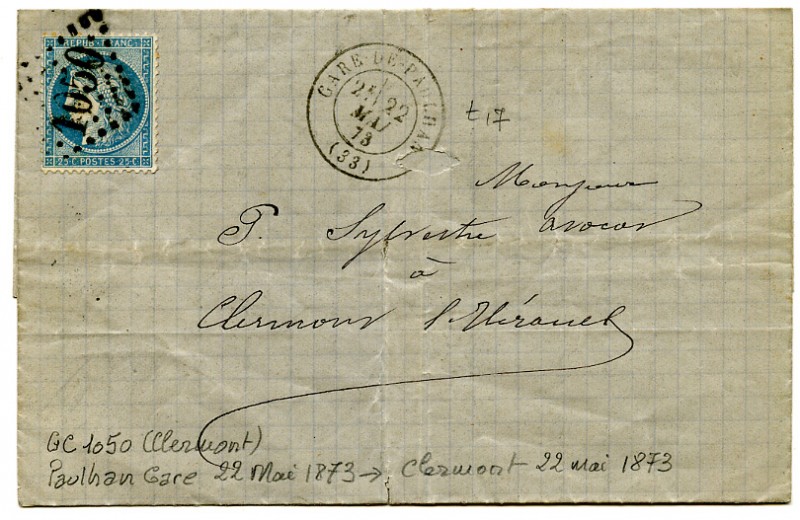 REPUB·FRANC·
1050
25·C POSTES 25·C
GARE-DE-PAULHAN
2E 22
MAI
73
(33)
t 17
Monsieur
P. Sylvestre avocat
à
Clermont l'Hérault
GC 1050 (Clermont)
Paulhan Gare 22 Mai 1873 → Clermont 22 mai 1873